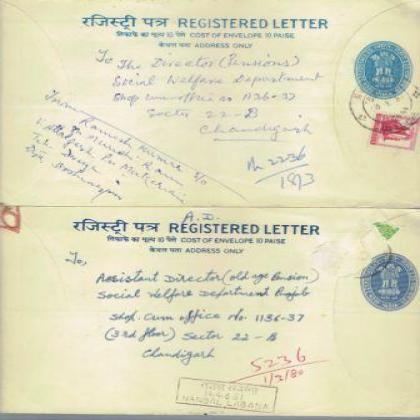 रजिस्ट्री पत्र REGISTERED LETTER
लिफाफे का मूल्य 10 पैसे COST OF ENVELOPE 10 PAISE
केवल पता ADDRESS ONLY
To The Director (Pensions)
Social Welfare Department
Shop cum office no 1136-37
Sector 22-B
Chandigarh
From Ramesh Kumar S/o
2236
18/3
A.D.
रजिस्ट्री पत्र REGISTERED LETTER
लिफाफे का मूल्य 10 पैसे COST OF ENVELOPE 10 PAISE
केवल पता ADDRESS ONLY
To,
Assistant Director (old age Pension)
Social Welfare Department Punjab
Shop. Cum office No. 1136-37
(3rd floor) Sector 22-B
Chandigarh
5236
1/2/80
NANGAL LABANA